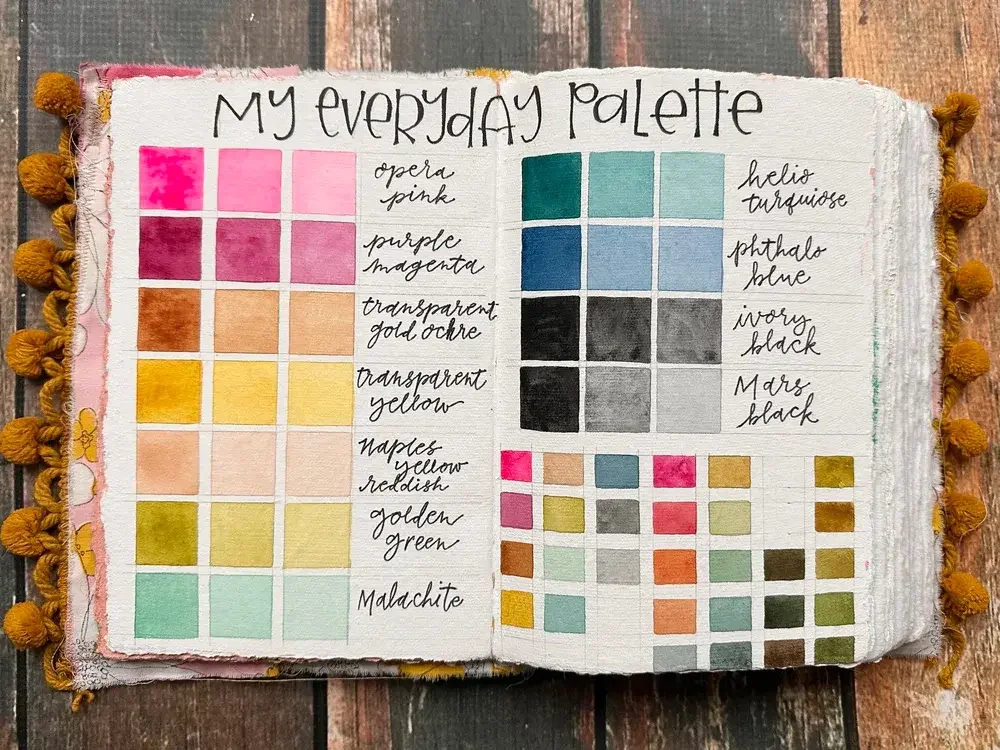 My everyday palette
opera
pink
purple
magenta
transparent
gold ochre
transparent
yellow
Naples
yellow
reddish
golden
green
Malachite
helio
turquiose
phthalo
blue
ivory
black
Mars
black